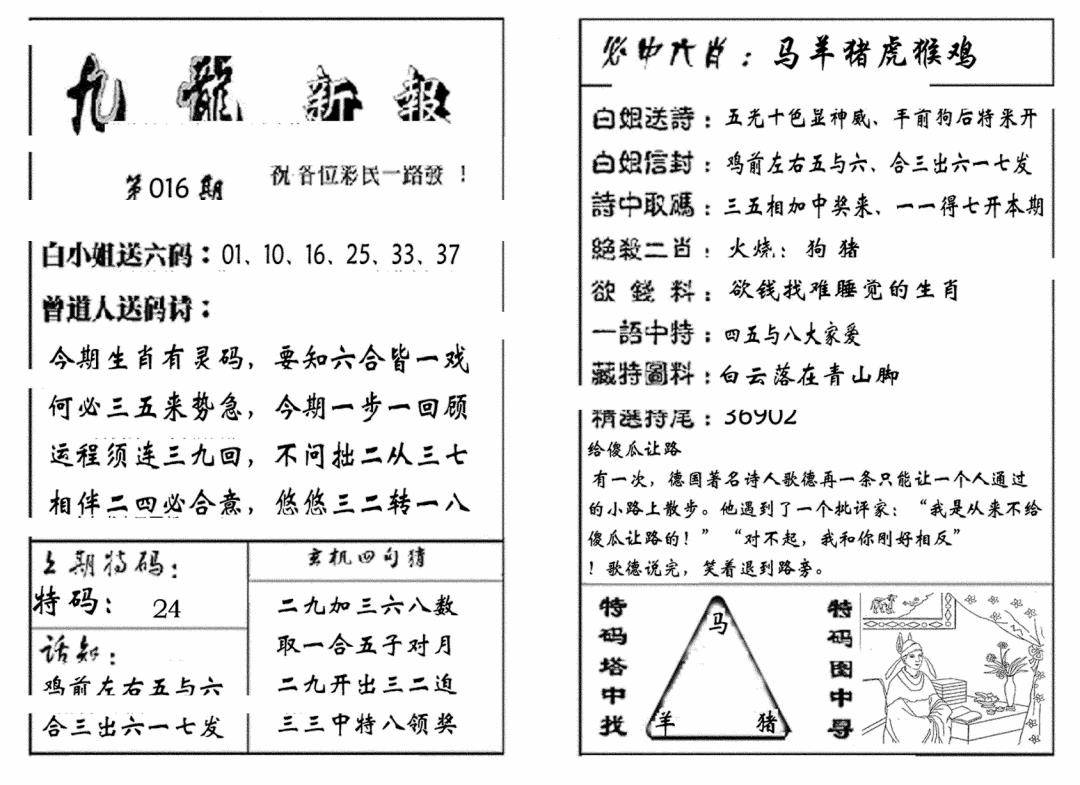 九龍新報
第016期
祝各位彩民一路發！
白小姐送六码：01、10、16、25、33、37
曾道人送码诗：
今期生肖有灵码，要知六合皆一戏
何必三五来势急，今期一步一回顾
运程须连三九回，不问拙二从三七
相伴二四必合意，悠悠三二转一八
上期特码：
特码：24
话知：
鸡前左右五与六
合三出六一七发
玄机四句猜
二九加三六八数
取一合五子对月
二九开出三二迫
三三中特八领奖
必中六肖：马羊猪虎猴鸡
白姐送詩：五光十色显神威、羊前狗后特来开
白姐信封：鸡前左右五与六、合三出六一七发
詩中取碼：三五相加中奖来、一一得七开本期
絕殺二肖：火烧：狗猪
欲錢料：欲钱找难睡觉的生肖
一語中特：四五与八大家爱
藏特圖料：白云落在青山脚
精選特尾：36902
给傻瓜让路
有一次，德国著名诗人歌德再一条只能让一个人通过
的小路上散步。他遇到了一个批评家：“我是从来不给
傻瓜让路的！”“对不起，我和你刚好相反”
！歌德说完，笑着退到路旁。
特码塔中找
马
羊 猪
特码图中寻